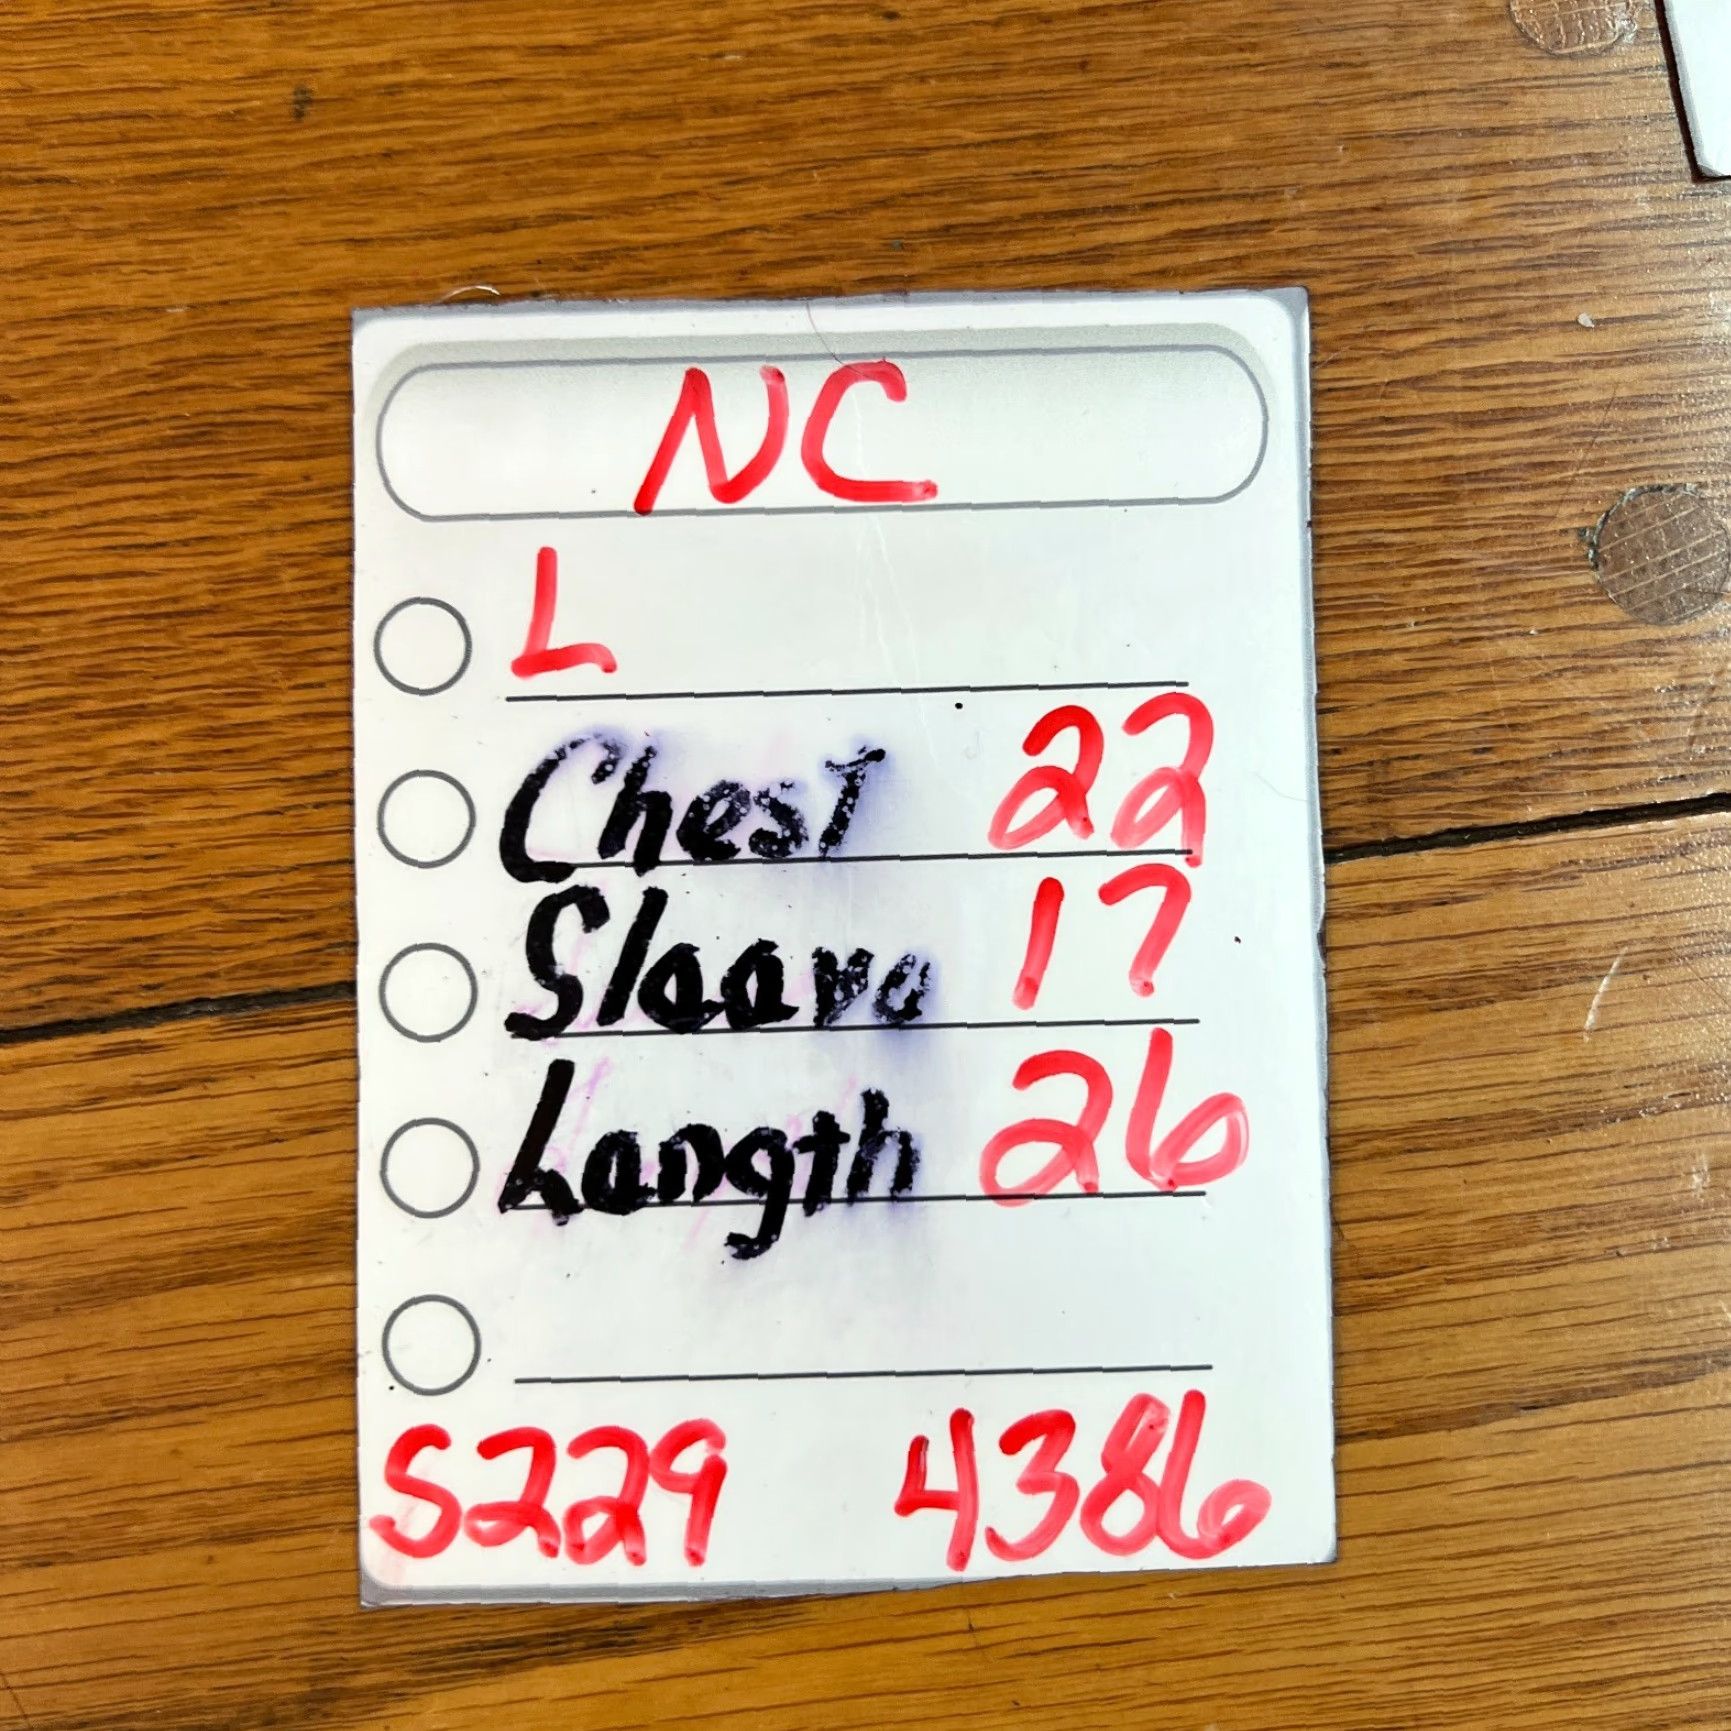 NC
L
Chest 22
Sleeve 17
Length 26
S229 4386